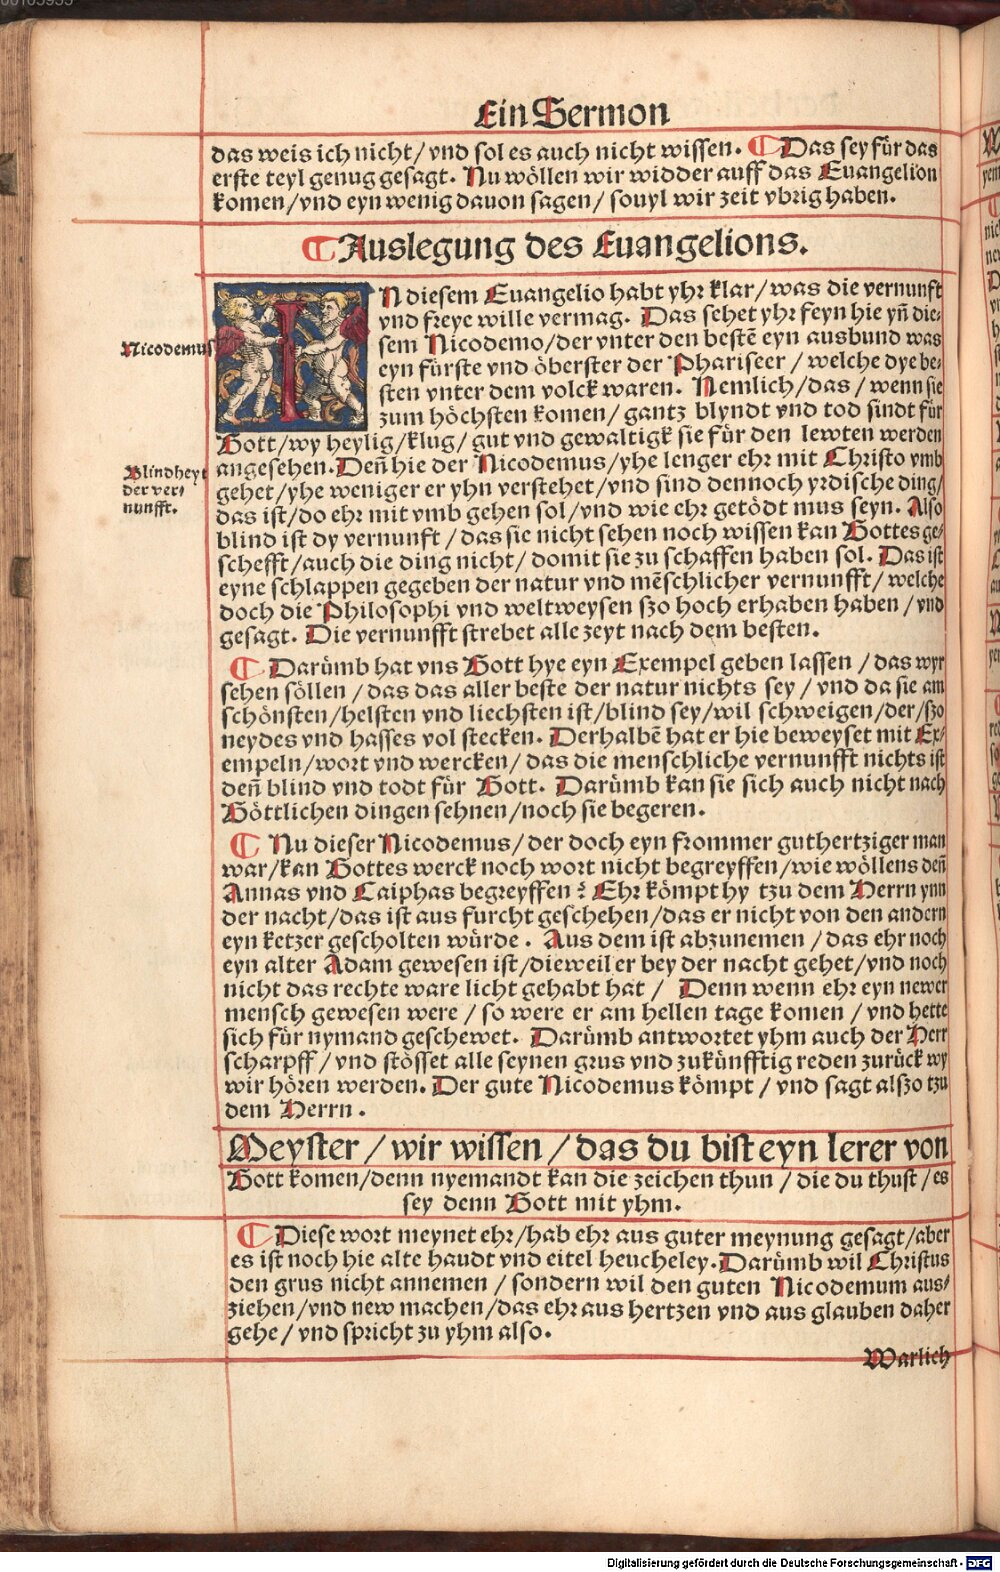 Ein Sermon
das weis ich nicht/ vnd sol es auch nicht wissen. ¶ Das sey für das
erste teyl genug gesagt. Nu wöllen wir widder auff das Euangelion
komen/ vnd eyn wenig dauon sagen/ souyl wir zeit vbrig haben.
¶ Auslegung des Euangelions.
IN diesem Euangelio habt yhr klar/ was die vernunft
vnd freye wille vermag. Das sehet yhr feyn hie yn̄ die⸗
Nicodemus
sem Nicodemo/ der vnter den bestē eyn ausbund was
eyn fürste vnd öberster der Phariseer/ welche dye be⸗
sten vnter dem volck waren. Nemlich/ das/ wenn sie
zum höchsten komen/ gantz blyndt vnd tod sindt für
Gott/ wy heylig/ klug/ gut vnd gewaltigk sie für den lewten werden
Blindheyt
der ver⸗
nunfft.
angesehen. Deñ hie der Nicodemus/ yhe lenger ehr mit Christo vmb
gehet/ yhe weniger er yhn verstehet/ vnd sind dennoch yrdische ding/
das ist/ do ehr mit vmb gehen sol/ vnd wie ehr getödt mus seyn. Also
blind ist dy vernunft/ das sie nicht sehen noch wissen kan Gottes ge⸗
schefft/ auch die ding nicht/ domit sie zu schaffen haben sol. Das ist
eyne schlappen gegeben der natur vnd mēschlicher vernunfft/ welche
doch die Philosophi vnd weltweysen szo hoch erhaben haben/ vnd
gesagt. Die vernunfft strebet alle zeyt nach dem besten.
¶ Darümb hat vns Gott hye eyn Exempel geben lassen/ das wyr
sehen söllen/ das das aller beste der natur nichts sey/ vnd da sie am
schönsten/ helsten vnd liechsten ist/ blind sey/ wil schweigen/ der/ szo
neydes vnd hasses vol stecken. Derhalbē hat er hie beweyset mit Ex⸗
empeln/ wort vnd wercken/ das die menschliche vernunfft nichts ist
deñ blind vnd todt für Gott. Darümb kan sie sich auch nicht nach
Göttlichen dingen sehnen/ noch sie begeren.
¶ Nu dieser Nicodemus/ der doch eyn frommer guthertziger man
war/ kan Gottes werck noch wort nicht begreyffen/ wie wöllens deñ
Annas vnd Caiphas begreyffen? Ehr kömpt hy tzu dem Herrn ynn
der nacht/ das ist aus furcht geschehen/ das er nicht von den andern
eyn ketzer gescholten würde. Aus dem ist abzunemen/ das ehr noch
eyn alter Adam gewesen ist/ dieweil er bey der nacht gehet/ vnd noch
nicht das rechte ware licht gehabt hat/ Denn wenn ehr eyn newer
mensch gewesen were/ so were er am hellen tage komen/ vnd hette
sich für nymand geschewet. Darümb antwortet yhm auch der Herr
scharpff/ vnd stösset alle seynen grus vnd zukünfftig reden zurück wy
wir hören werden. Der gute Nicodemus kömpt/ vnd sagt alszo tzu
dem Herrn.
Meyster/ wir wissen/ das du bist eyn lerer von
Gott komen/ denn nyemandt kan die zeichen thun/ die du thust/ es
sey denn Gott mit yhm.
¶ Diese wort meynet ehr/ hab ehr aus guter meynung gesagt/ aber
es ist noch hie alte haudt vnd eitel heucheley. Darümb wil Christus
den grus nicht annemen/ sondern wil den guten Nicodemum aus⸗
ziehen/ vnd new machen/ das ehr aus hertzen vnd aus glauben daher
gehe/ vnd spricht zu yhm also.
Warlich
Digitalisierung gefördert durch die Deutsche Forschungsgemeinschaft - DFG